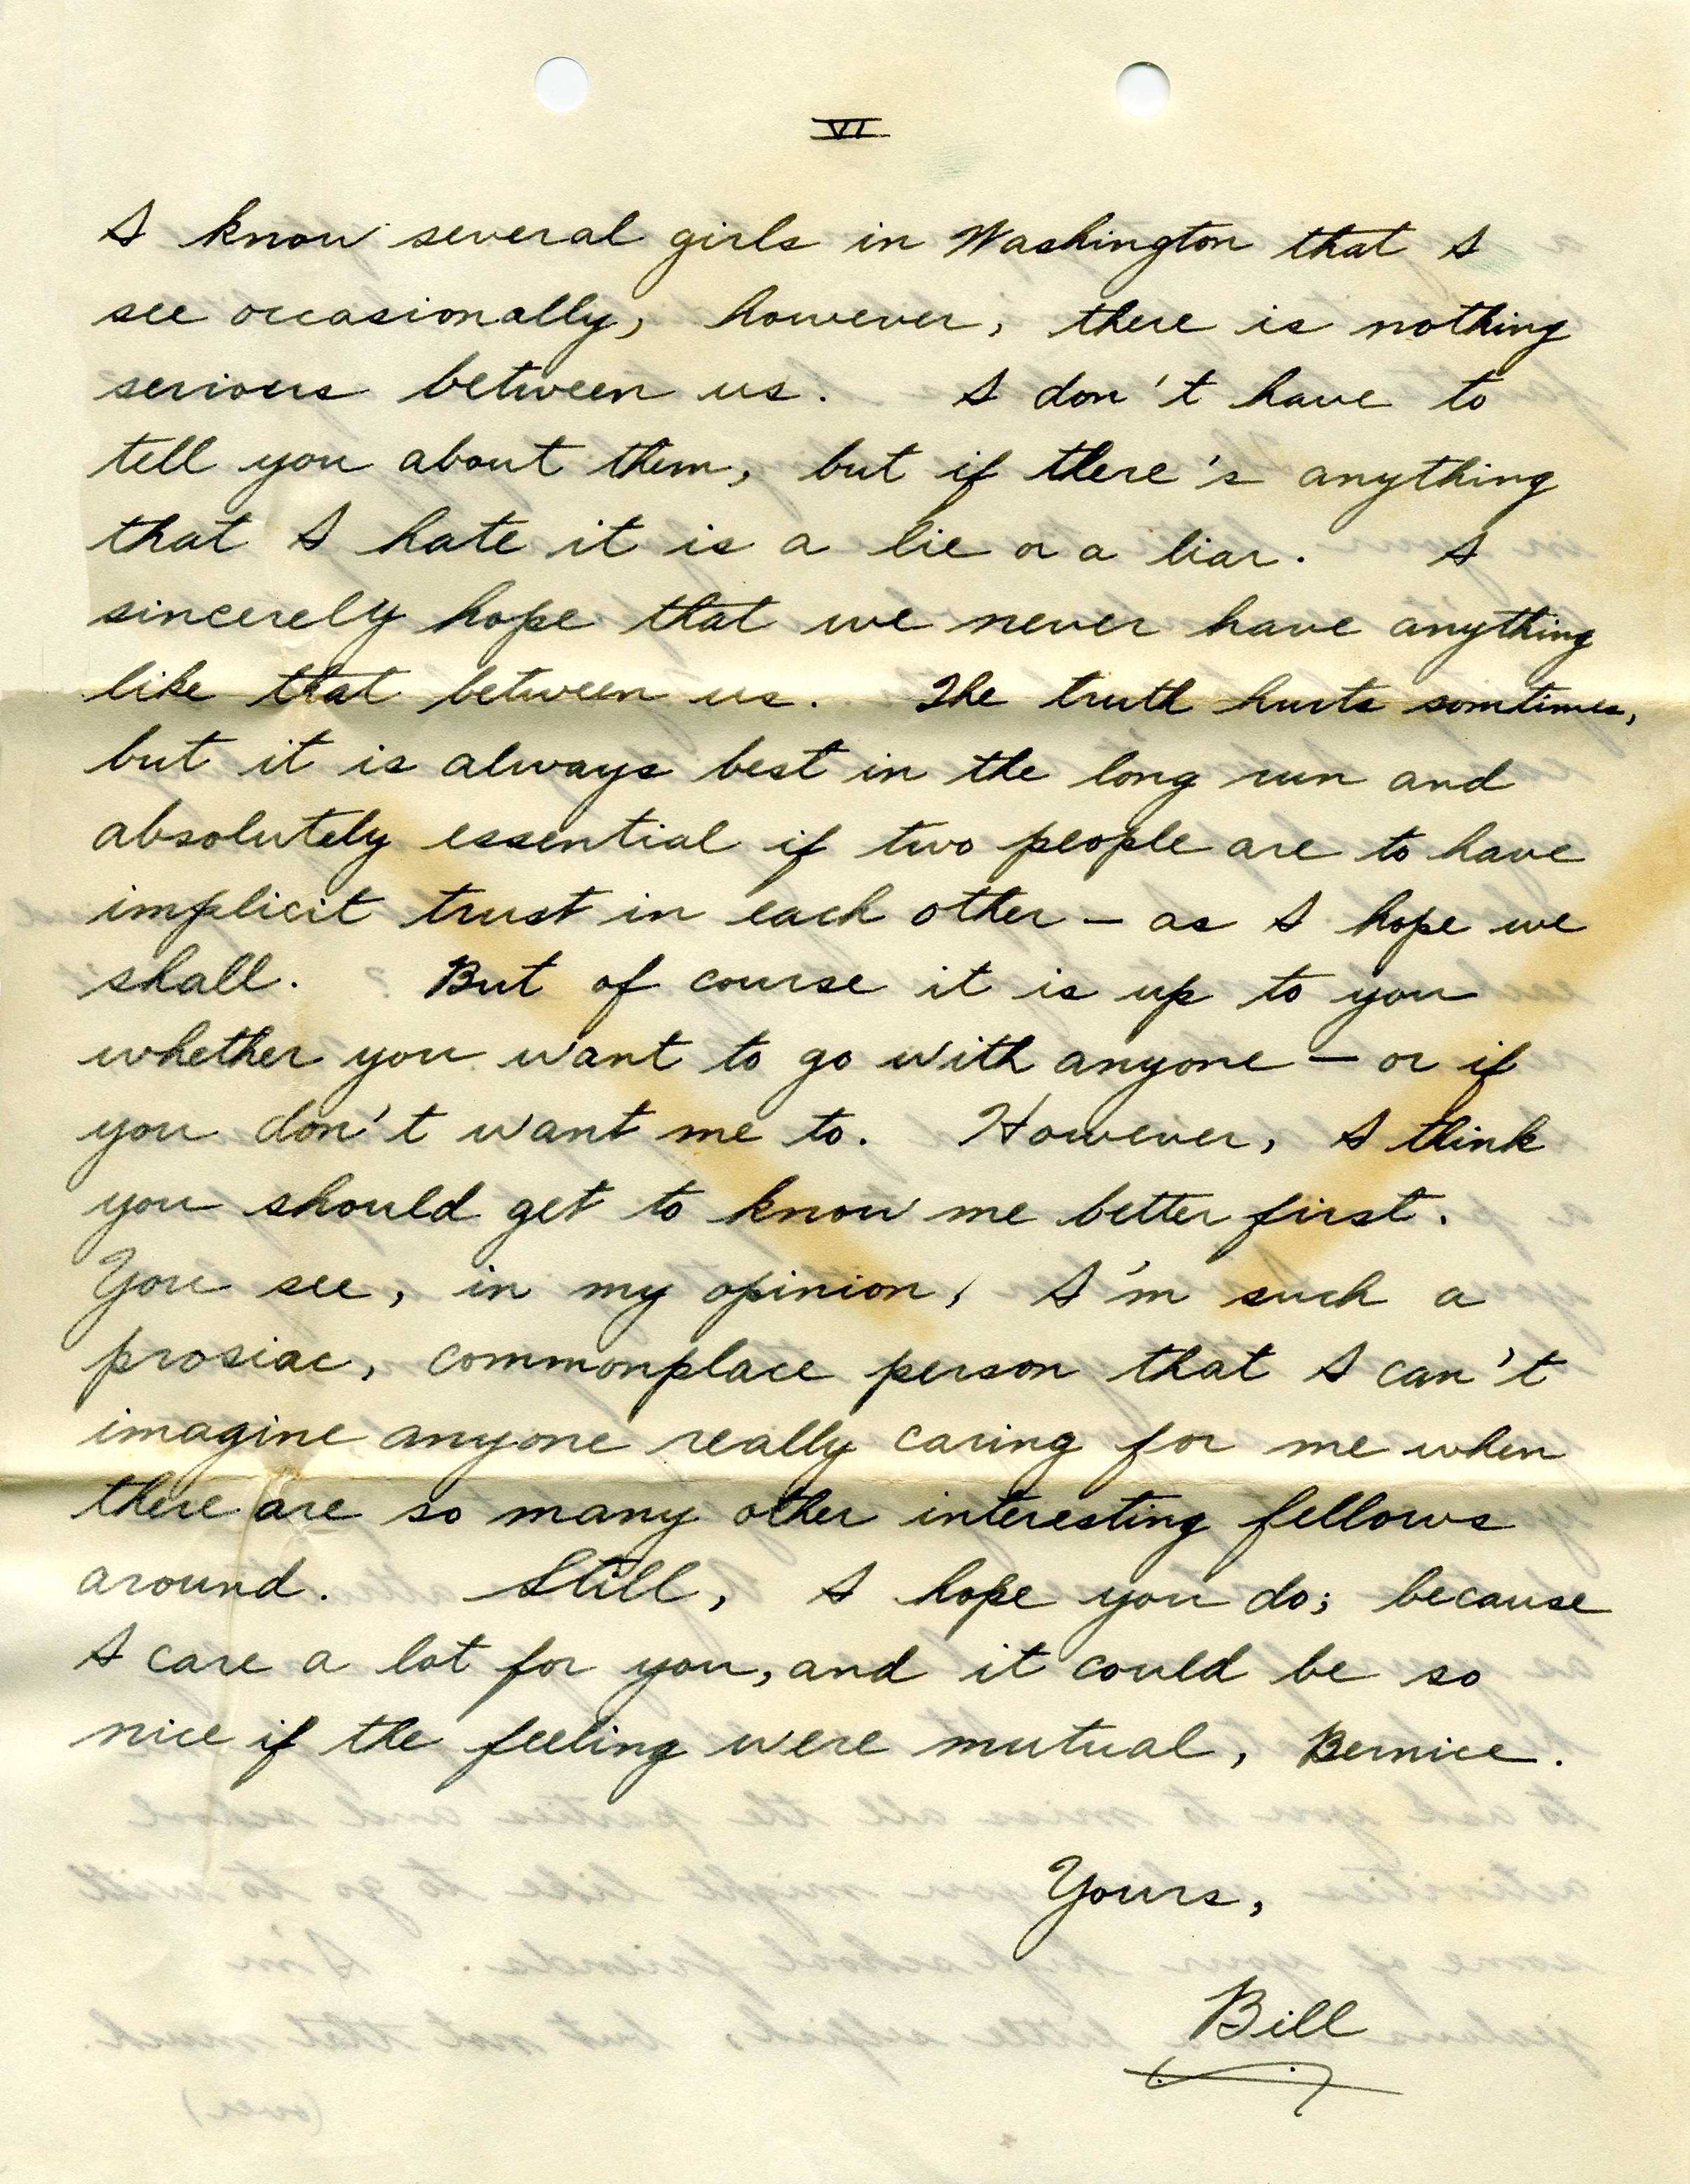 VI
I know several girls in Washington that I
see occasionally, however, there is nothing
serious between us. I don't have to
tell you about them, but if there's anything
that I hate it is a lie or a liar. I
sincerely hope that we never have anything
like that between us. The truth hurts somtimes,
but it is always best in the long run and
absolutely essential if two people are to have
implicit trust in each other – as I hope we
shall. But of course it is up to you
whether you want to go with anyone – or if
you don't want me to. However, I think
you should get to know me better first.
You see, in my opinion, I'm such a
prosiac, commonplace person that I can't
imagine anyone really caring for me when
there are so many other interesting fellows
around. Still, I hope you do; because
I care a lot for you, and it could be so
nice if the feeling were mutual, Bernice.
Yours,
Bill